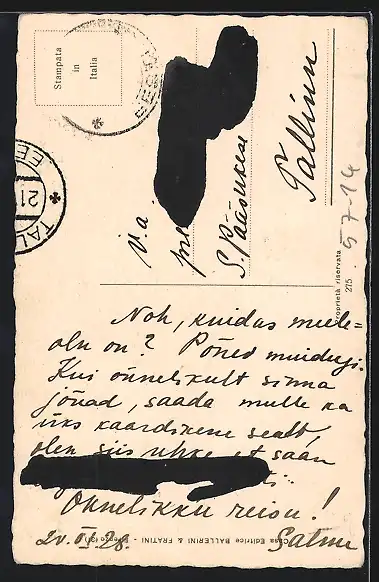 Stampata
in
Italia
EESTI
V. a.
S. Pääsukese
Tallinn
57-14
Proprietà riservata
215
TAL
21
EE
Noh, kuidas meele=
olu on? Põnev muidugi.
Kui õnnelikult sinna
jõuad, saada mulle ka
üks kaardikene sealt,
olen siis uhke et saan
Õnnelikku reisu!
20. VI. 28. Salme
Casa Editrice BALLERINI & FRATINI